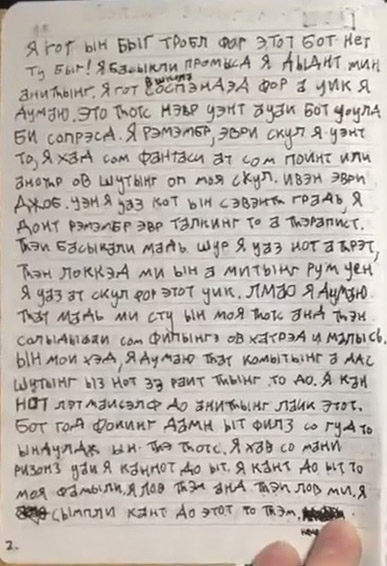 Я гот ын быг тробл фор этот бот нет
ту быг! Я басыкли промыса Я дыднт мин
в школе
анитынг. Я гот соспэндэд фор а уик я
думаю. Это тотс нэвр уэнт ауаи бот уоула
би сопрэса. Я рэмэмбр, эври скул я уэнт
то, я хад сом фантаси ат сом поинт или
анотыр ов шутынг оп моя скул. Ивэн эври
джоб. Уэн я уаз кот ын сэвэнт градь, я
донт рэмэмбр эвр талкинг то а тэрапист.
Тэи басыкали мадь шур я уаз нот а трэт,
тэн локкэд ми ын а митынг рум уен
я уаз ат скул фор этот уик. ЛМАО я думаю.
Тат мадь ми сту ын моя тотс анд тэн
солыдыфаи сом филынгз ов хатрэд и малысь.
Ын мои хэд, я думаю тат комытынг а мас
шутынг ыз нот зэ раит тынг то до. Я кан
нот лэтмаисэлф до анитынг лаик этот.
Бот год фокинг дамн ыт филз со гуд то
ындулдж ын тэ тотс. Я хав со мани
ризонз уаи я каннот до ыт. Я кант до ыт то
моя фамыли. Я лов тэм анд тэи лов ми. Я
сымпли кант до этот то тэм.
2.